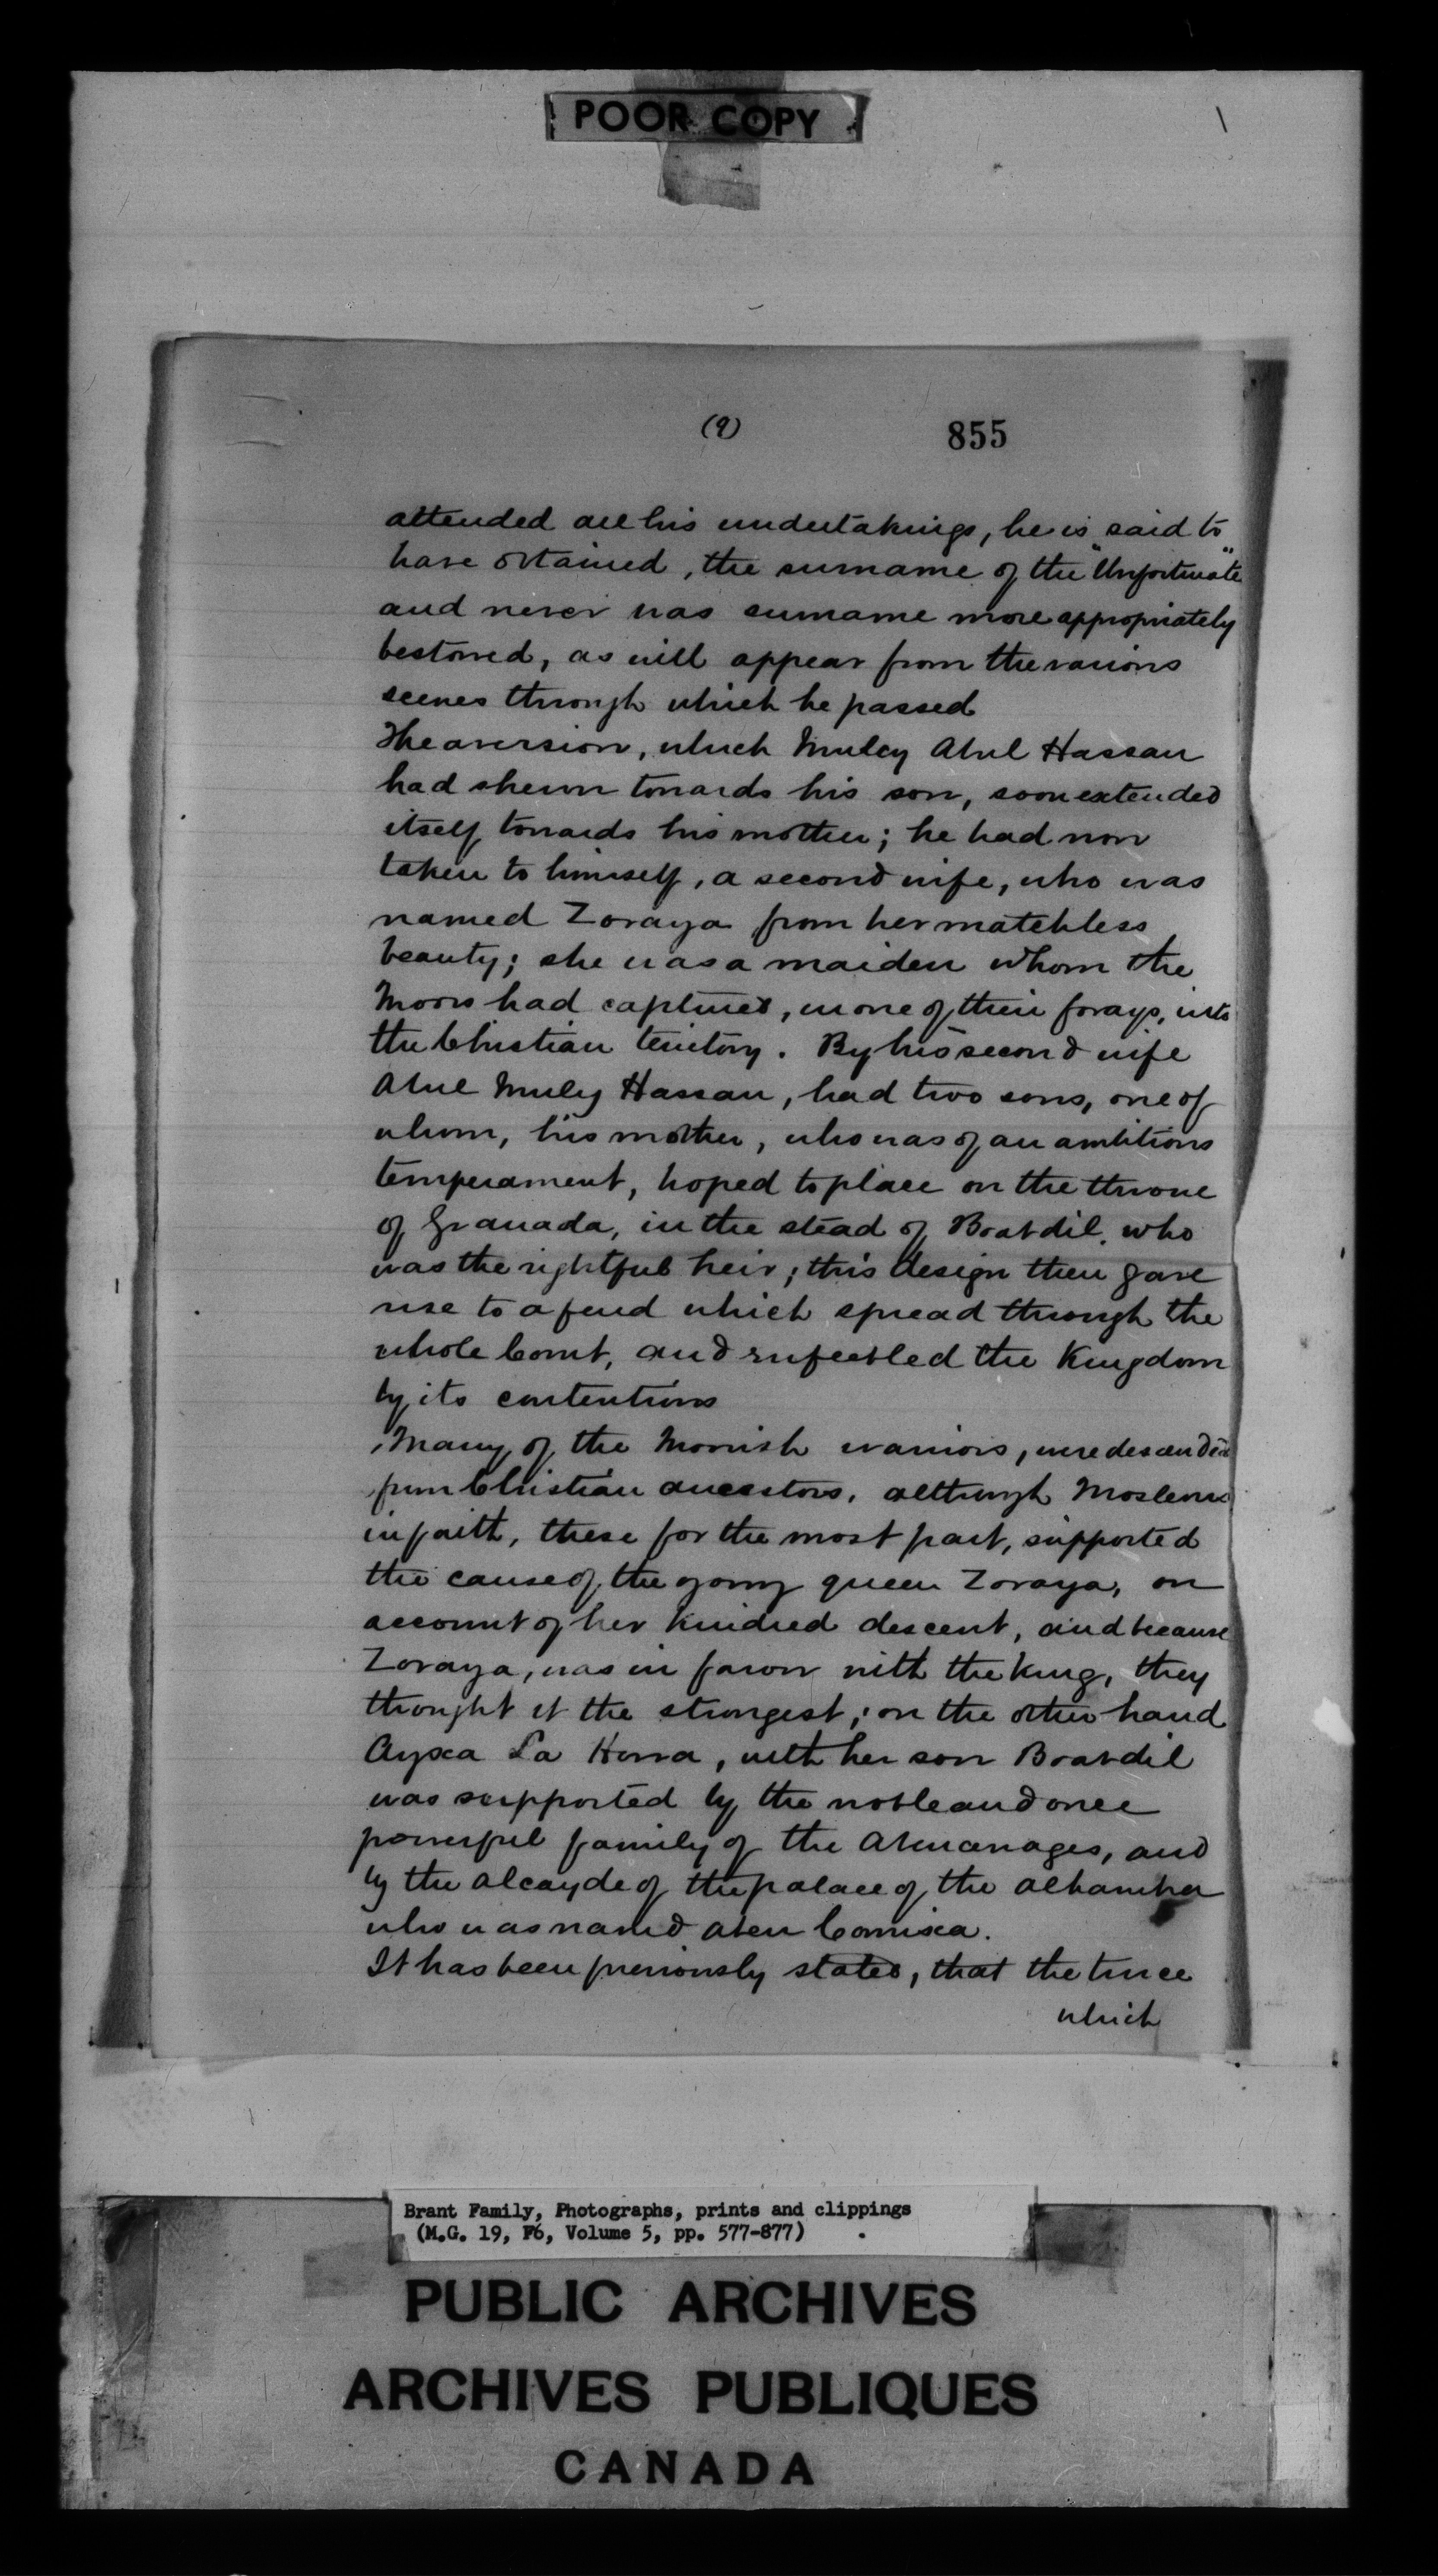 POOR COPY
(9)
855
attended all his undertakings, he is said to
have obtained, the surname of the "Unfortunate"
and never was surname more appropriately
bestowed, as will appear from the various
scenes through which he passed
The aversion, which Muley Abul Hassan
had shewn towards his son, soon extended
itself towards his mother; he had now
taken to himself, a second wife, who was
named Zoraya from her matchless
beauty; she was a maiden whom the
Moors had captured, in one of their forays, into
the Christian territory. By his second wife
Abul Muley Hassan, had two sons, one of
whom, his mother, who was of an ambitious
temperament, hoped to place on the throne
of Granada, in the stead of Boabdil, who
was the rightful heir; this design then gave
rise to a feud which spread through the
whole Court, and enfeebled the Kingdom
by its contentions
Many of the Moorish warriors, were descended
from Christian ancestors, although Moslems
in faith, these for the most part, supported
the cause of the young queen Zoraya, on
account of her kindred descent, and because
Zoraya, was in favor with the king, they
thought it the strongest; on the other hand
Ayxa La Horra, with her son Boabdil
was supported by the noble and once
powerful family of the Abencerrages, and
by the Alcayde of the palace of the Alhambra
who was named Aben Comixa.
It has been previously stated, that the truce
which
Brant Family, Photographs, prints and clippings
(M.G. 19, F6, Volume 5, pp. 577-877)
PUBLIC ARCHIVES
ARCHIVES PUBLIQUES
CANADA